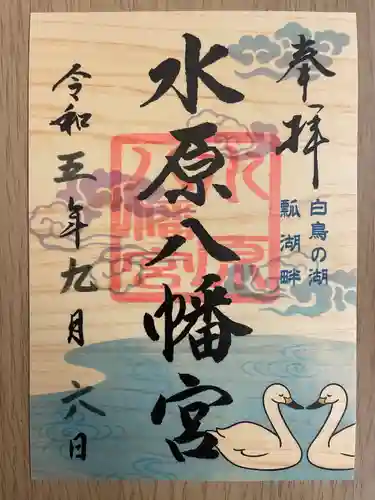 奉拝
白鳥の湖
瓢湖畔
水原八幡宮
水原八幡宮
令和五年九月六日